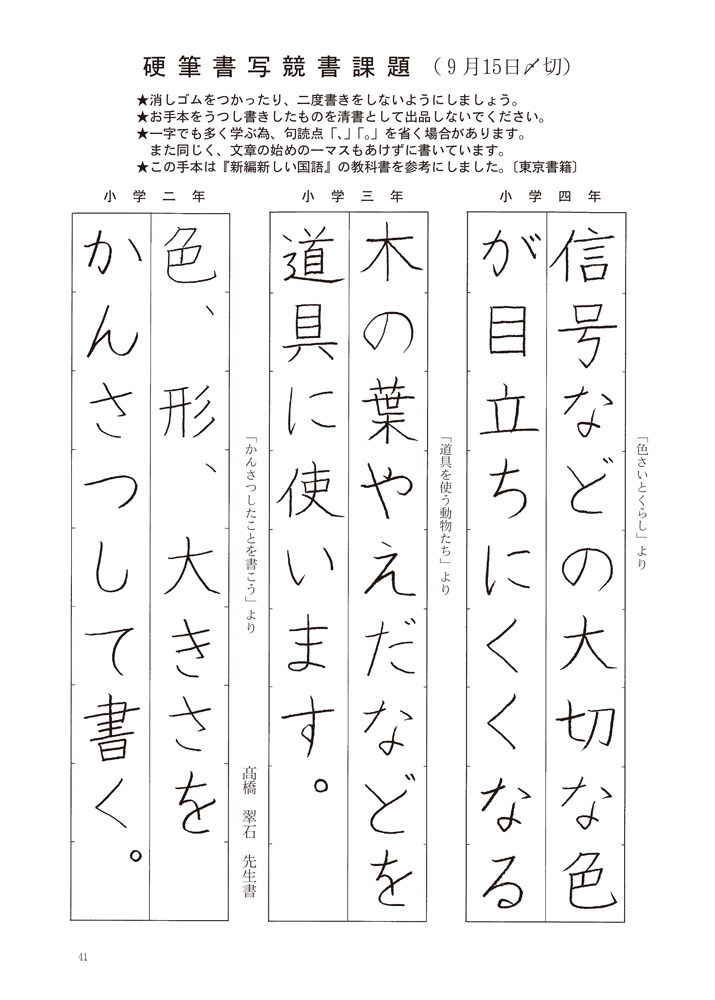 硬筆書写競書課題（９月15日〆切）
★消しゴムをつかったり、二度書きをしないようにしましょう。
★お手本をうつし書きしたものを清書として出品しないでください。
★一字でも多く学ぶ為、句読点「、」「。」を省く場合があります。
また同じく、文章の始めの一マスもあけずに書いています。
★この手本は『新編新しい国語』の教科書を参考にしました。〔東京書籍〕
小学四年
「色さいとくらし」より
信号などの大切な色
が目立ちにくくなる
小学三年
「道具を使う動物たち」より
木の葉やえだなどを
道具に使います。
小学二年
「かんさつしたことを書こう」より
色、形、大きさを
かんさつして書く。
髙橋　翠石　先生書
41